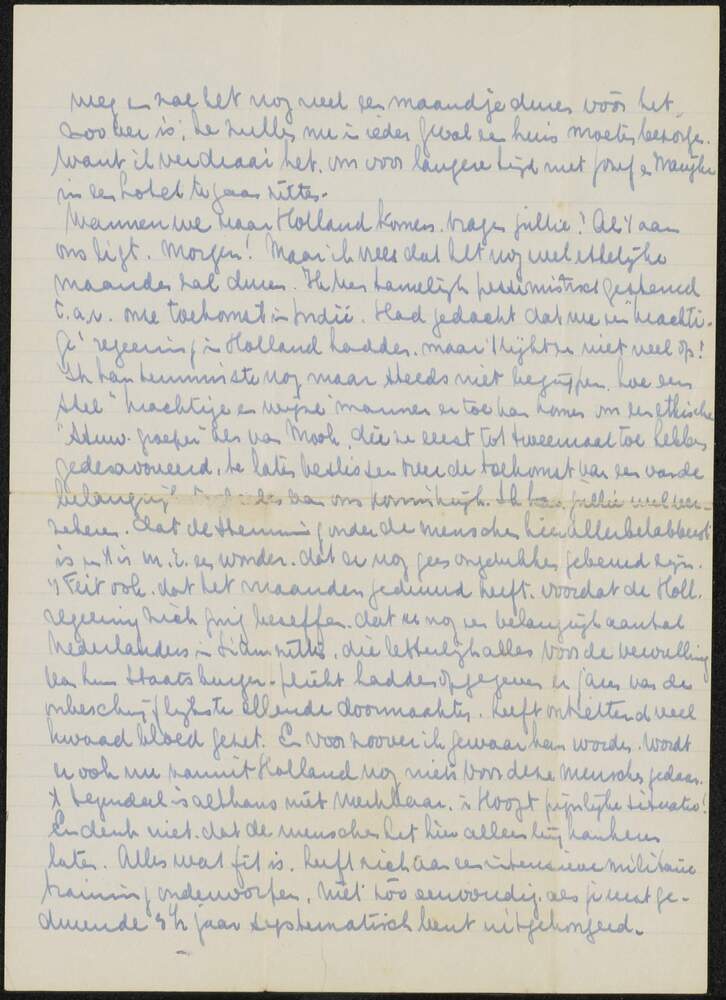 weg en zal het nog wel een maandje duren vóór het
zoo ver is; Ze zullen me in ieder geval een huis moeten bezorgen.
Want ik verdraai het, om voor langere tijd met Josef en Marijke
in een hotel te gaan zitten.
Wanneer we naar Holland komen, vragen jullie! Als 't aan
ons ligt. Morgen! Maar ik vrees dat het nog wel ettelijke
maanden zal duren. Ik ben tamelijk pessimistisch gestemd
t.a.v. onze toekomst in Indië. Had gedacht dat we een "krachti-
ge" regeering in Holland hadden, maar 't lijkt er niet veel op!
Ik kan tenminste nog maar steeds niet begrijpen, hoe een
stel "krachtige en wijze" mannen er toe kan komen om een ethische
"Stuw-groeper" als van Mook, die ze eerst tot tweemaal toe hebben
gedesavoueerd, te laten beslissen over de toekomst van een van de
belangrijkste deelen van ons koninkrijk. Ik kan jullie wel ver-
zekeren, dat de stemming onder de menschen hier allerbelabberdst
is en 't is m.i. een wonder, dat er nog geen ongelukken gebeurd zijn.
't Feit ook, dat het maanden geduurd heeft, voordat de Holl.
regeering zich ging beseffen, dat er nog een belangrijk aantal
Nederlanders in Siam zitten, die letterlijk alles voor de vervulling
van hun Staatsburger-plicht hadden opgegeven en jaren van de
onbeschrijflijkste ellende doormaakten, heeft ontzettend veel
kwaad bloed gezet. En voor zoover ik gewaar kan worden, wordt
er ook nu vanuit Holland nog niets voor deze menschen gedaan.
't Tegendeel is althans niet merkbaar. 'n Hoogst pijnlijke situatie!
En denk niet, dat de menschen het hier alleen bij kankeren
laten. Alles wat fit is, heeft zich aan een intensieve militaire
training onderworpen, niet zóó eenvoudig, als je net ge-
durende 3½ jaar systematisch bent uitgehongerd.